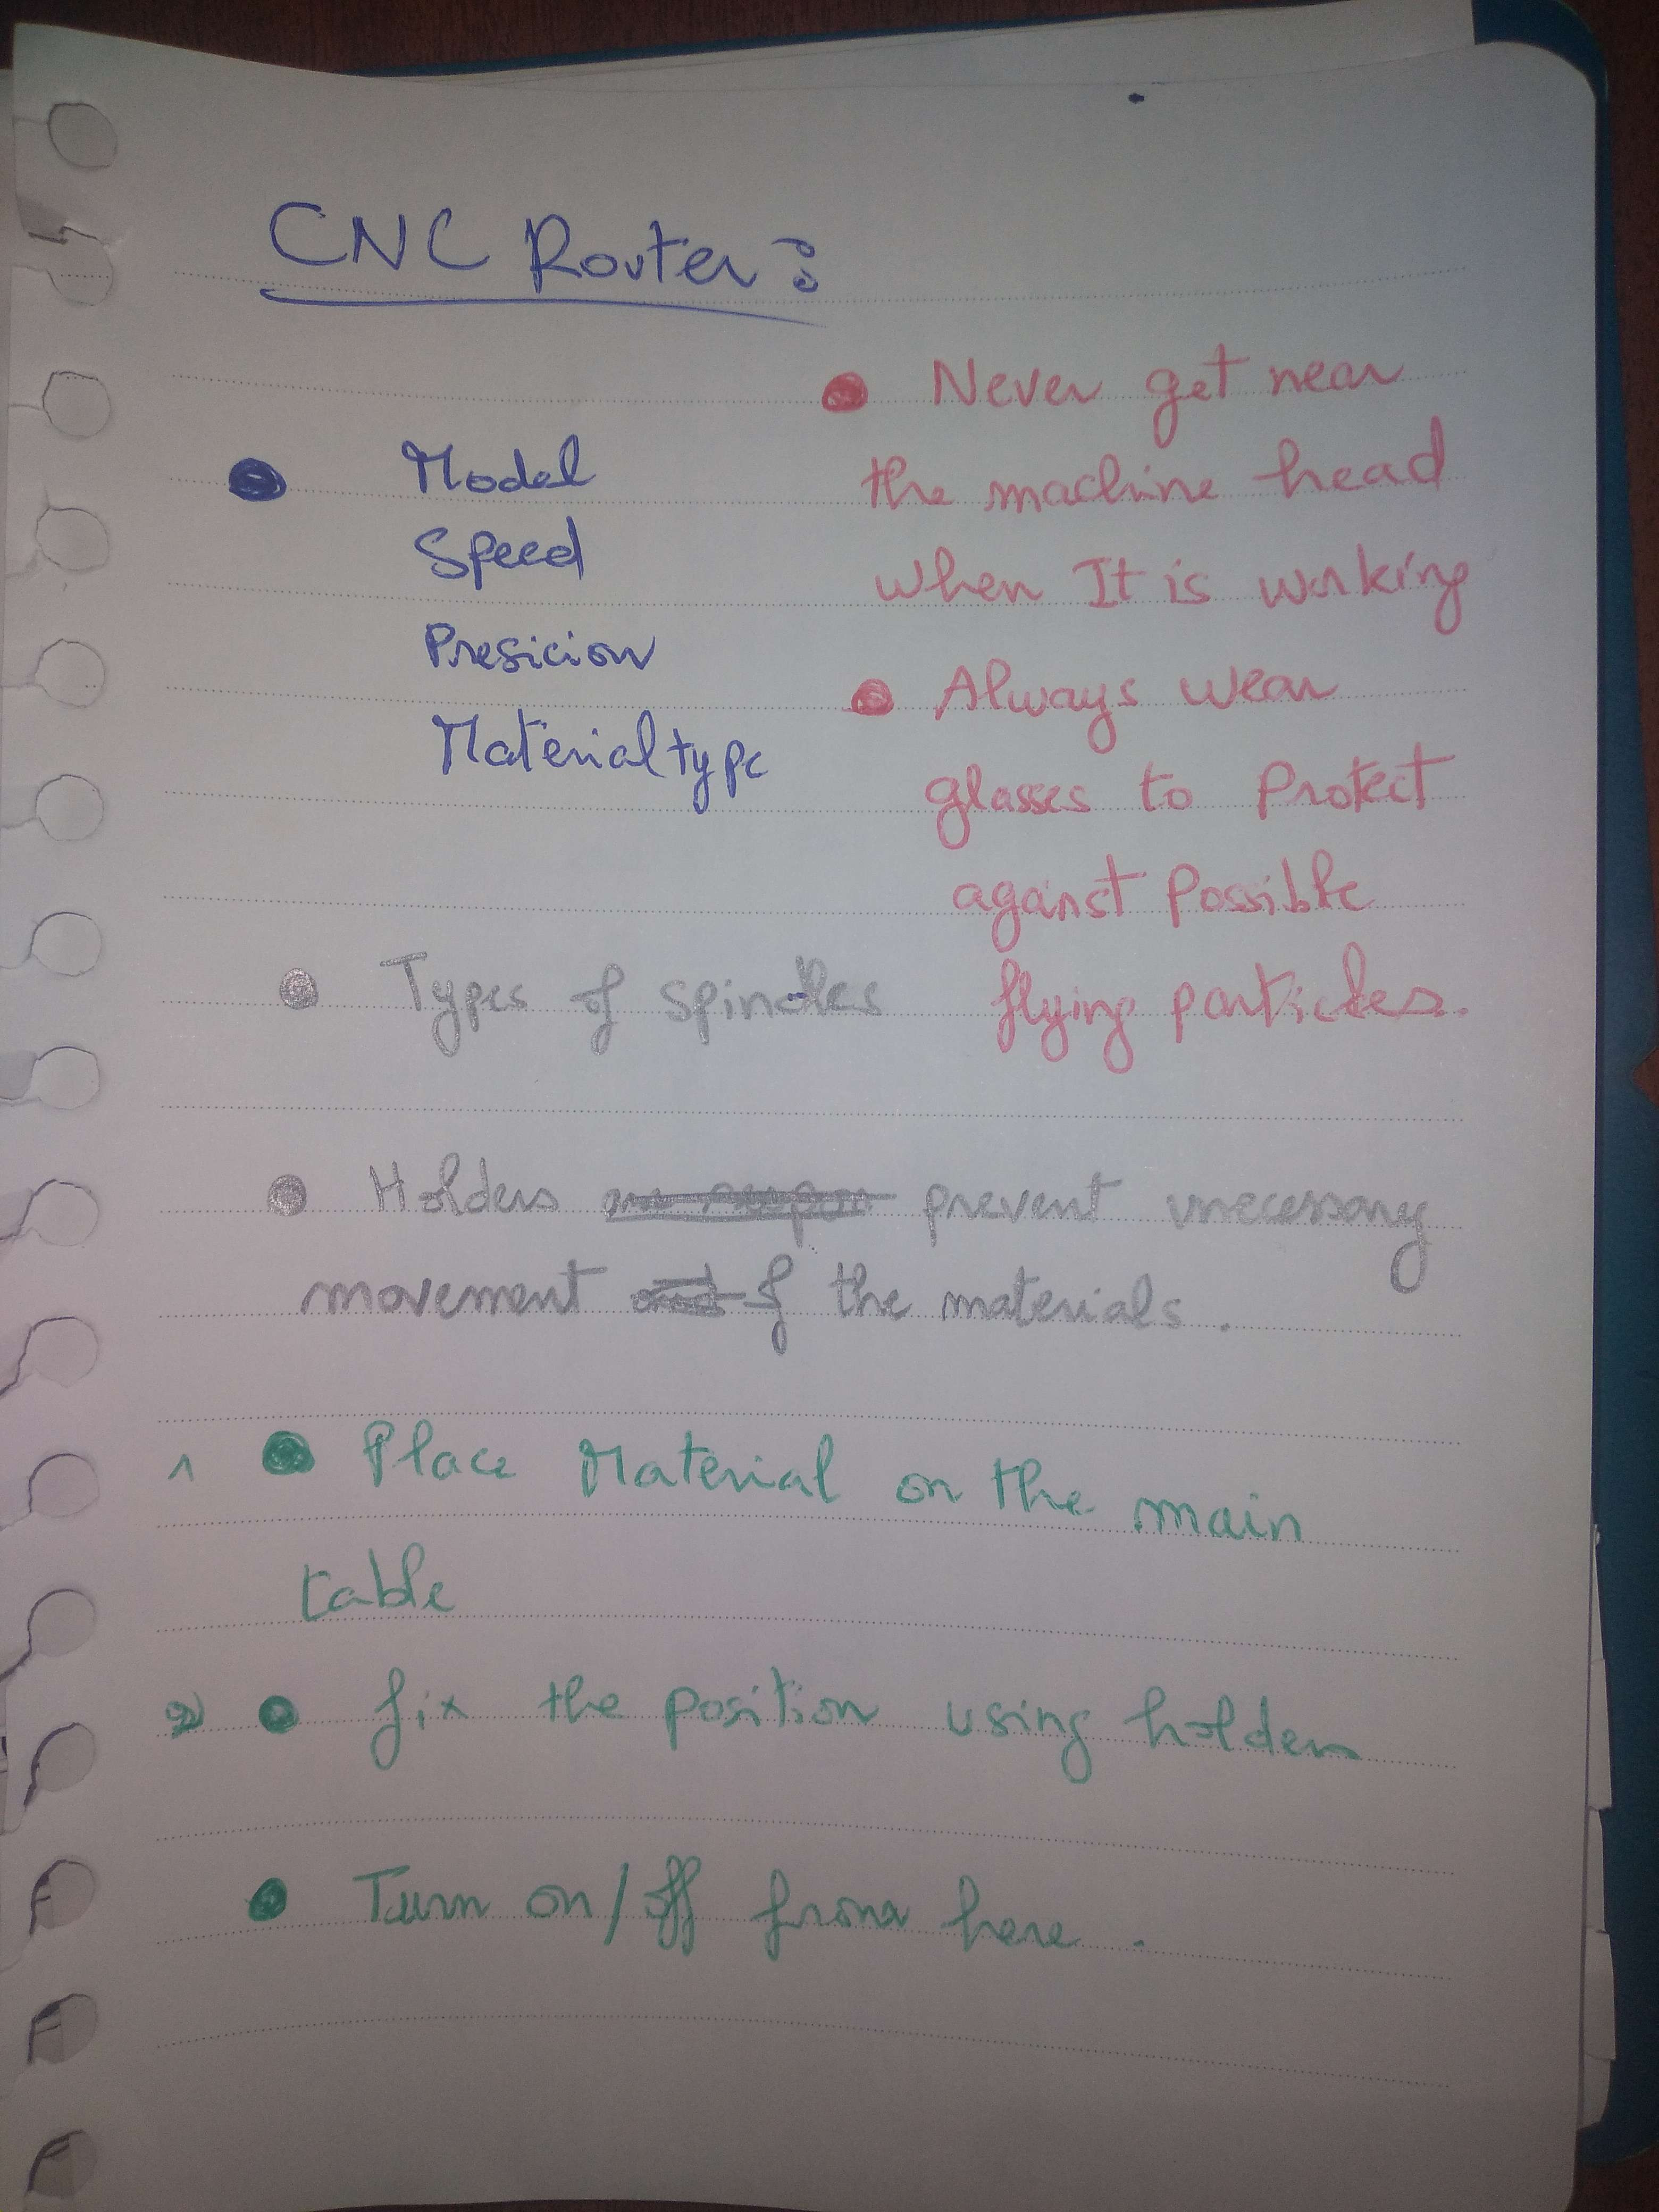 CNC Router:
● Model
Speed
Presicion
Material type
● Never get near
the machine head
when It is working
● Always wear
glasses to Protect
against Possible
flying particles.
● Types of spindles
● Holders prevent unecessary
movement of the materials.
1 ● Place Material on the main
table
2 ● fix the position using holders
● Turn on/off from here.